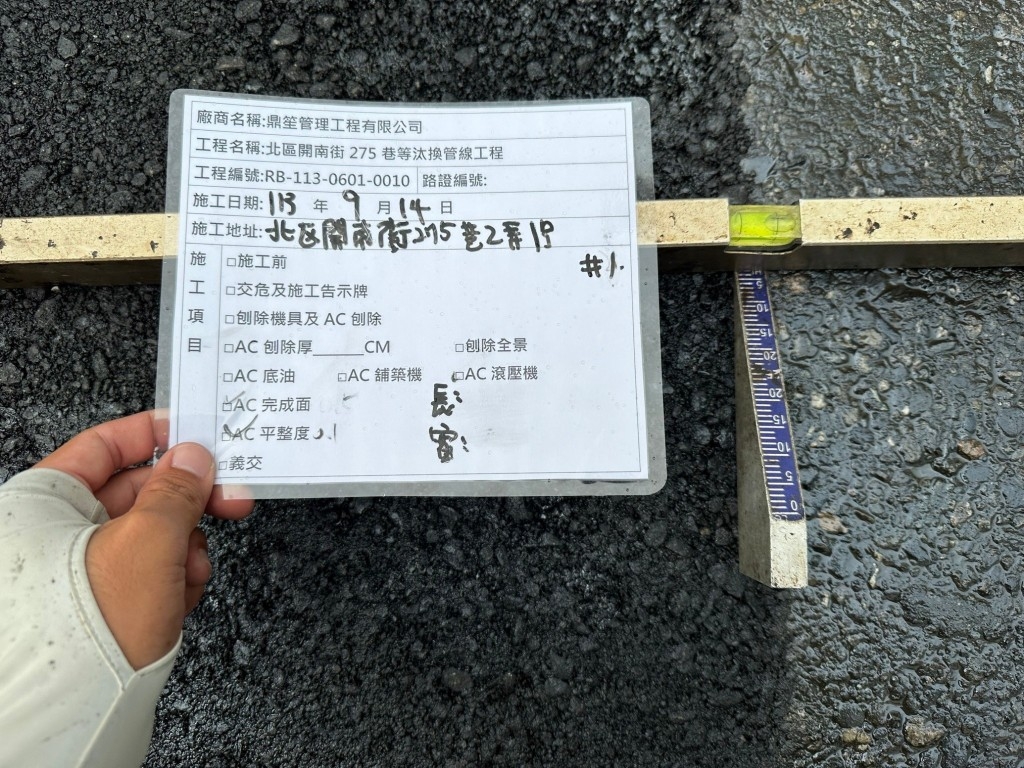 廠商名稱:鼎笙管理工程有限公司
工程名稱:北區開南街 275 巷等汰換管線工程
工程編號:RB-113-0601-0010 路證編號:
施工日期:113 年 9 月 14 日
施工地址:北区開南街275巷2弄19
#1.
施工項目
□施工前
□交危及施工告示牌
□刨除機具及 AC 刨除
□AC 刨除厚______CM □刨除全景
□AC 底油 □AC 鋪築機 □AC 滾壓機
□AC 完成面 長:
□AC 平整度 0.1 寬:
□義交
5
10
15
20
20
15
10
5
0